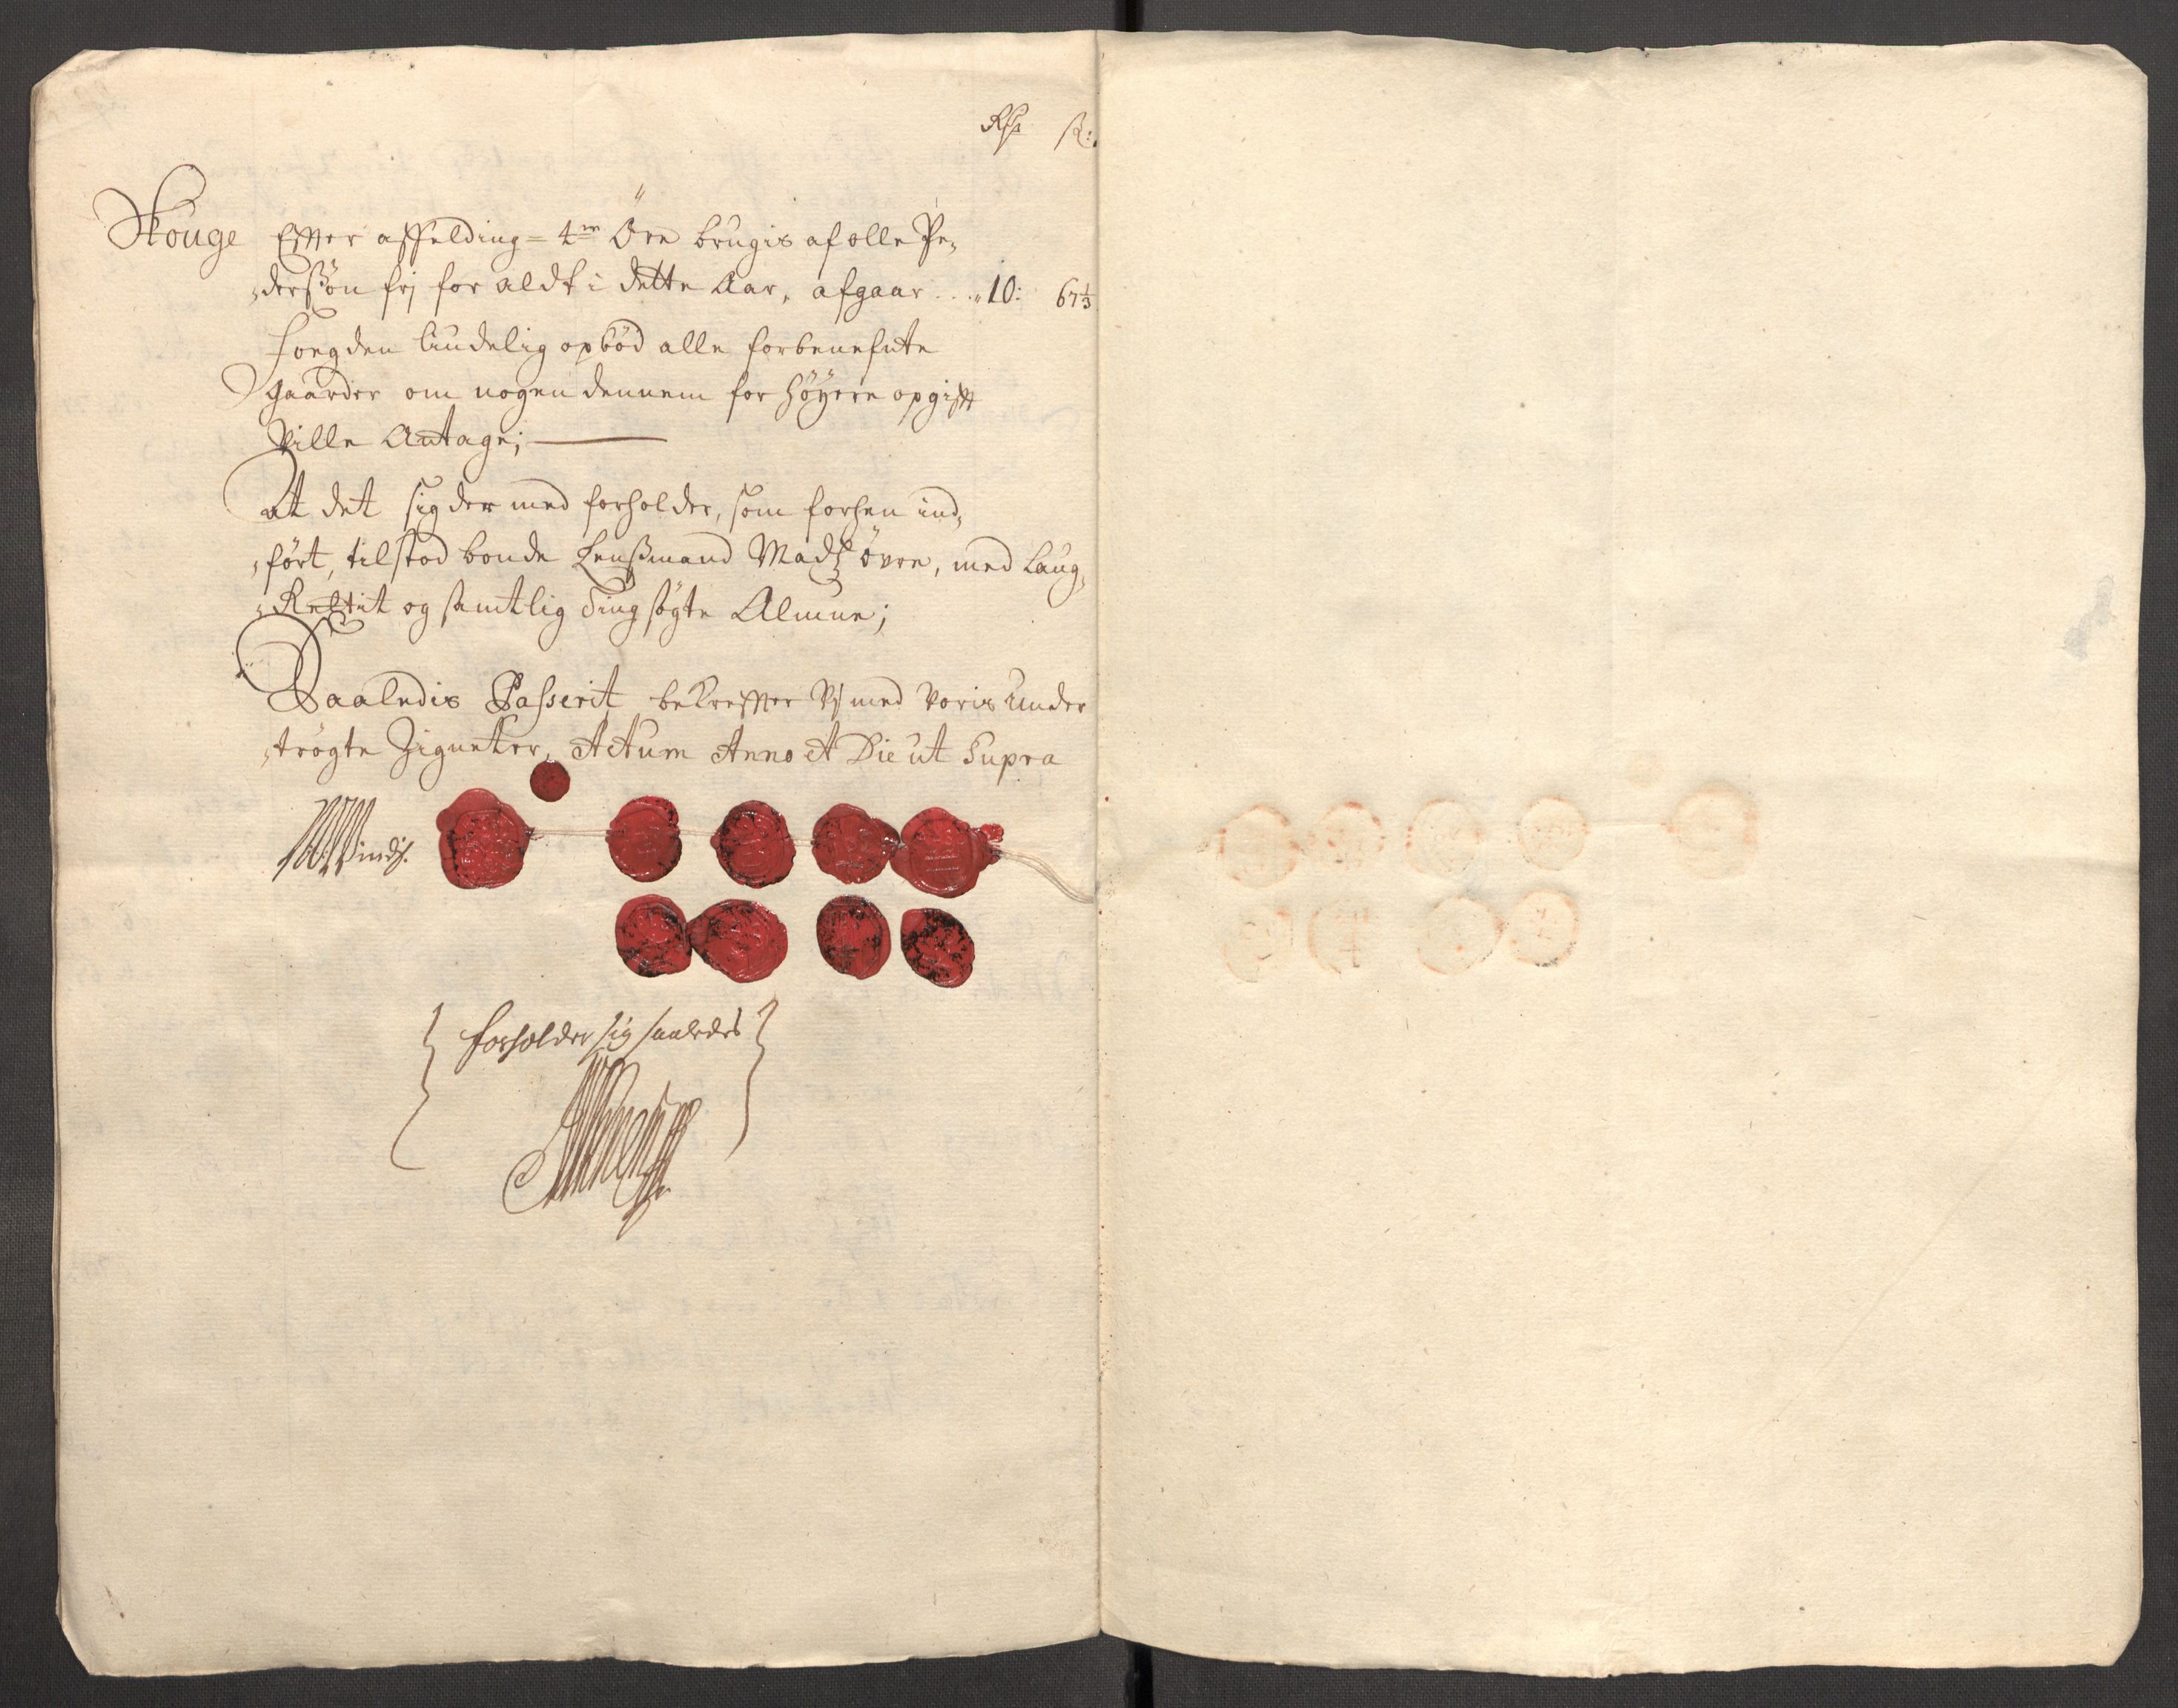 Rdr ß:
Skouge Efter affelding = 4re Öre brugis af olle Pe„
„derßøn frj for aldt i dette Aar, afgaar .... 10: 67⅓
Fogden liudelig opbød alle forbenefnte
Gaarder om nogen dennem for høyere opgifft
Ville Antage;
At det sig der med forholder, som forhen ind„
„ført, tilstod bonde Lenßmand Madtz övre, med Laug„
„Rettit og samtlig Tingsøgte Almue;
Saaledis Passerit bekreffter Vj med voris under
„trögte Zignetter, Actum Anno et Die ut Supra
forholder sig saaledes